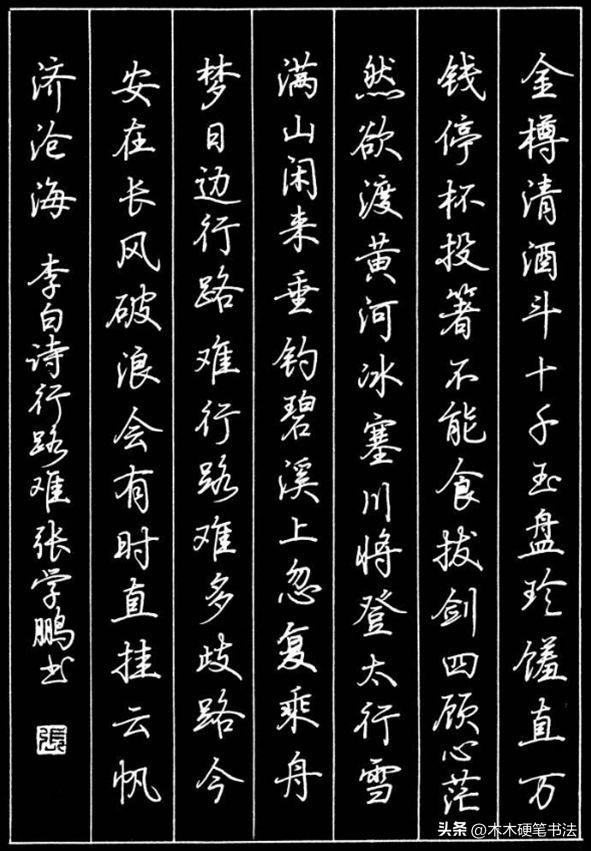 金樽清酒斗十千玉盘珍馐直万
钱停杯投箸不能食拔剑四顾心茫
然欲渡黄河冰塞川将登太行雪
满山闲来垂钓碧溪上忽复乘舟
梦日边行路难行路难多歧路今
安在长风破浪会有时直挂云帆
济沧海 李白诗行路难张学鹏书
張
头条 @木木硬笔书法